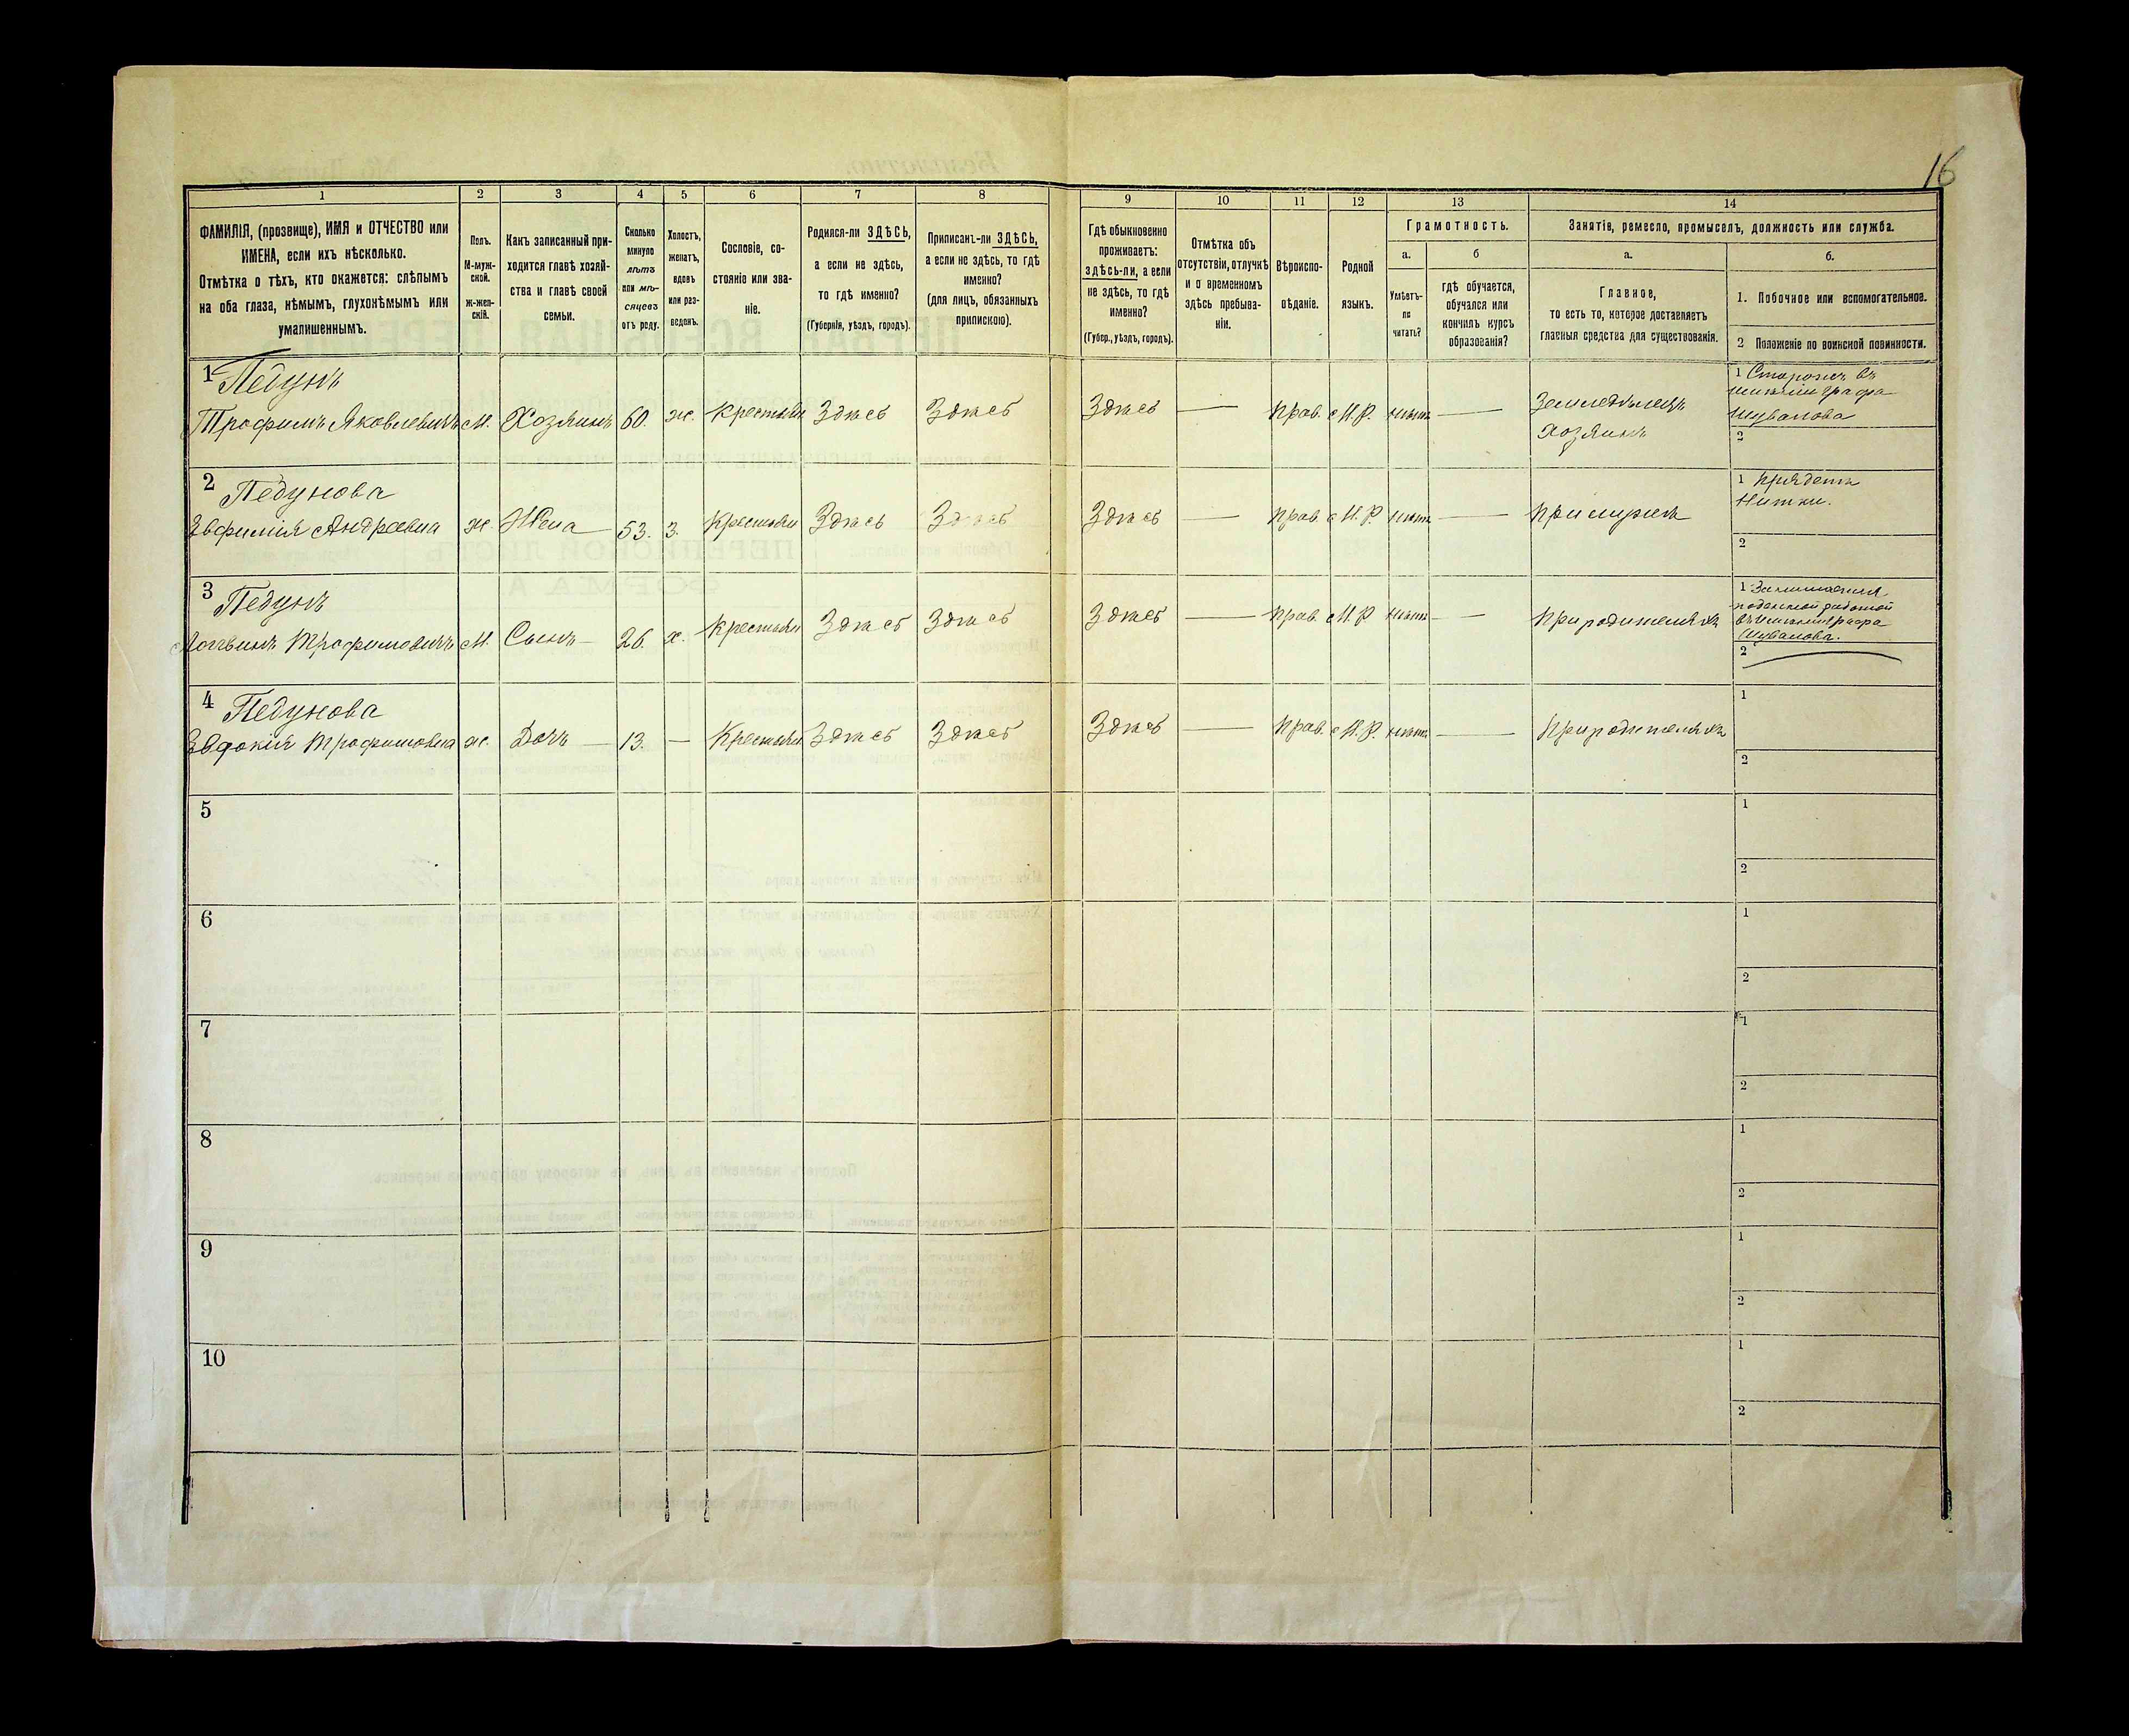 16
1 2 3 4 5 6 7 8 9 10 11 12 13 14
ФАМИЛІЯ, (прозвище), ИМЯ и ОТЧЕСТВО или
ИМЕНА, если ихъ нѣсколько.
Отмѣтка о тѣхъ, кто окажется: слѣпымъ
на оба глаза, нѣмымъ, глухонѣмымъ или
умалишеннымъ.
Полъ.
М-муж-
ской.
ж-жен-
скій.
Какъ записанный при-
ходится главѣ хозяй-
ства и главѣ своей
семьи.
Сколько
минуло
лѣтъ
или мѣ-
сяцевъ
отъ роду.
Холостъ,
женатъ,
вдовъ
или раз-
веденъ.
Сословіе, со-
стояніе или зва-
ніе.
Родился-ли ЗДѢСЬ,
а если не здѣсь,
то гдѣ именно?
(Губернія, уѣздъ, городъ).
Приписанъ-ли ЗДѢСЬ,
а если не здѣсь, то гдѣ
именно?
(для лицъ, обязанныхъ
припискою).
Гдѣ обыкновенно
проживаетъ:
здѣсь-ли, а если
не здѣсь, то гдѣ
именно?
(Губер., уѣздъ, городъ).
Отмѣтка объ
отсутствіи, отлучкѣ
и о временномъ
здѣсь пребыва-
ніи.
Вѣроиспо-
вѣданіе.
Родной
языкъ.
Грамотность.
а.
Умѣетъ-
ли
читать?
б
гдѣ обучается,
обучался или
кончилъ курсъ
образованія?
Занятіе, ремесло, промыселъ, должность или служба.
а.
Главное,
то есть то, которое доставляетъ
главныя средства для существованія.
б.
1. Побочное или вспомогательное.
2 Положеніе по воинской повинности.
1 Педунъ
Трофимъ Яковлевичъ М. Хозяинъ 60. ж. Крестьян Здѣсь Здѣсь Здѣсь — прав. М.Р. нѣтъ — Земледѣлецъ
хозяинъ
1 Сторожъ въ
имѣніи графа
Шувалова
2
2 Педунова
Евфимія Андреевна ж. Жена — 53. З. Крестьян Здѣсь Здѣсь Здѣсь — прав. М.Р. нѣтъ — При мужѣ
1 Прядетъ
нитки.
2
3 Педунъ
Логвинъ Трофимовичъ М. Сынъ — 26. х. Крестьян Здѣсь Здѣсь Здѣсь — прав. М.Р нѣтъ — При родителяхъ
1 Занимается
поденной работой
въ имѣніи графа
Шувалова.
2
4 Педунова
Евдокія Трофимовна ж. Дочь — 13. — Крестьян Здѣсь Здѣсь Здѣсь — прав. М.Р. нѣтъ — При родителяхъ
1
2
5
1
2
6
1
2
7
1
2
8
1
2
9
1
2
10
1
2